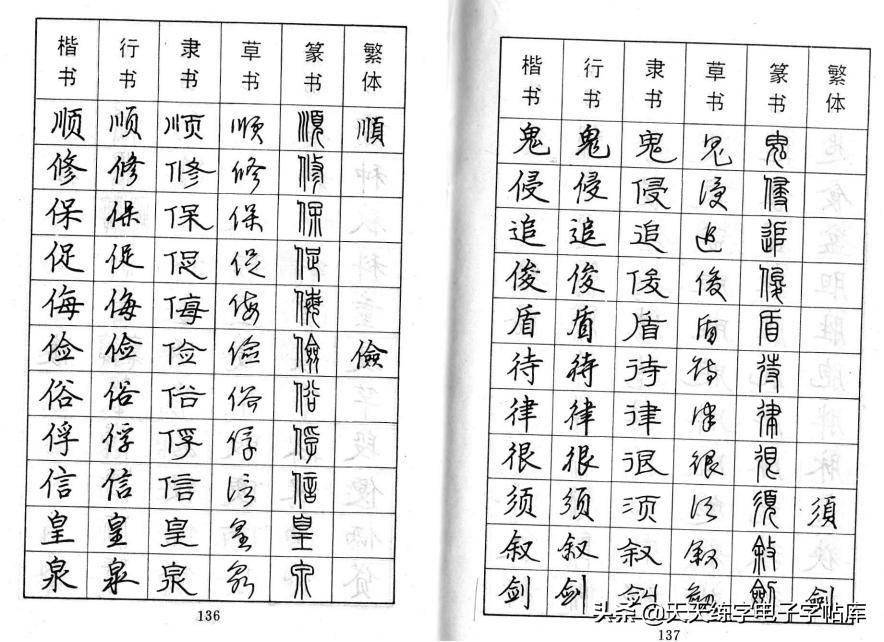 楷书 行书 隶书 草书 篆书 繁体
顺 顺 顺 顺 順 順
修 修 修 修 修
保 保 保 保 保
促 促 促 促 促
侮 侮 侮 侮 侮
俭 俭 俭 俭 儉 儉
俗 俗 俗 俗 俗
俘 俘 俘 俘 俘
信 信 信 信 信
皇 皇 皇 皇 皇
泉 泉 泉 泉 泉
136
楷书 行书 隶书 草书 篆书 繁体
鬼 鬼 鬼 鬼 鬼
侵 侵 侵 侵 侵
追 追 追 追 追
俊 俊 俊 俊 俊
盾 盾 盾 盾 盾
待 待 待 待 待
律 律 律 律 律
很 很 很 很 很
须 须 须 须 須 須
叙 叙 叙 叙 敍
剑 剑 剑 剑 劍 劍
137
头条@天天练字电子字帖库